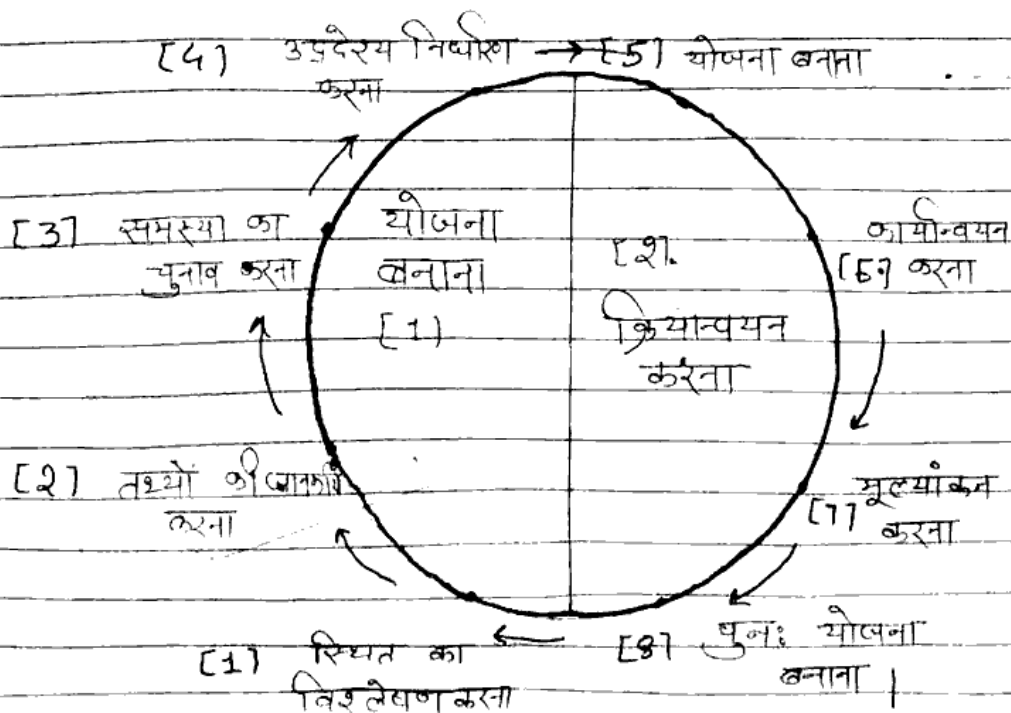 [4] उद्देश्य निर्धारण → [5] योजना बनाना
करना
[3] समस्या का
चुनाव करना
योजना
बनाना
[1]
[2].
क्रियान्वयन
करना
कार्यान्वयन
[6] करना
[2] तथ्यों की
करना
मूल्यांकन
[7] करना
[1] स्थित का
विश्लेषण करना
[8] पुनः योजना
बनाना |